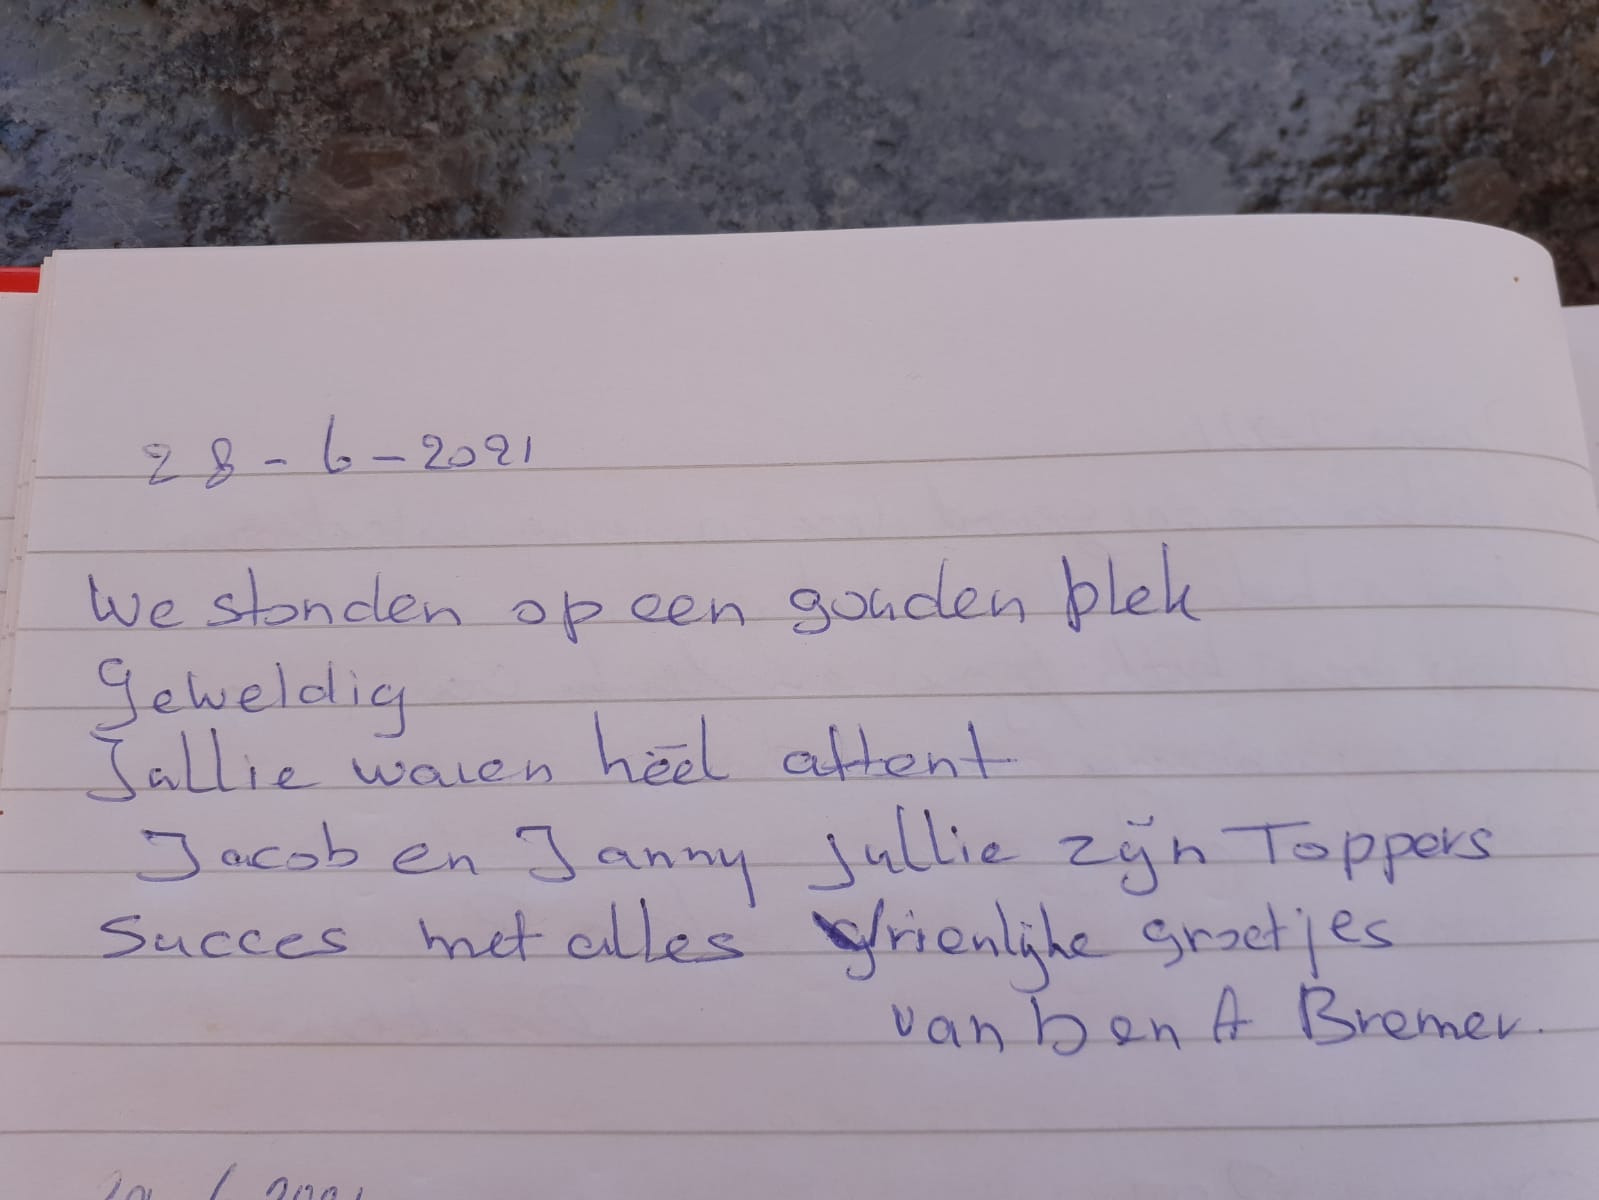 28-6-2021
We stonden op een gouden plek
Geweldig
Jullie waren héél attent
Jacob en Janny jullie zijn Toppers
Succes met alles vrienlijke groetjes
van b en A Bremer.